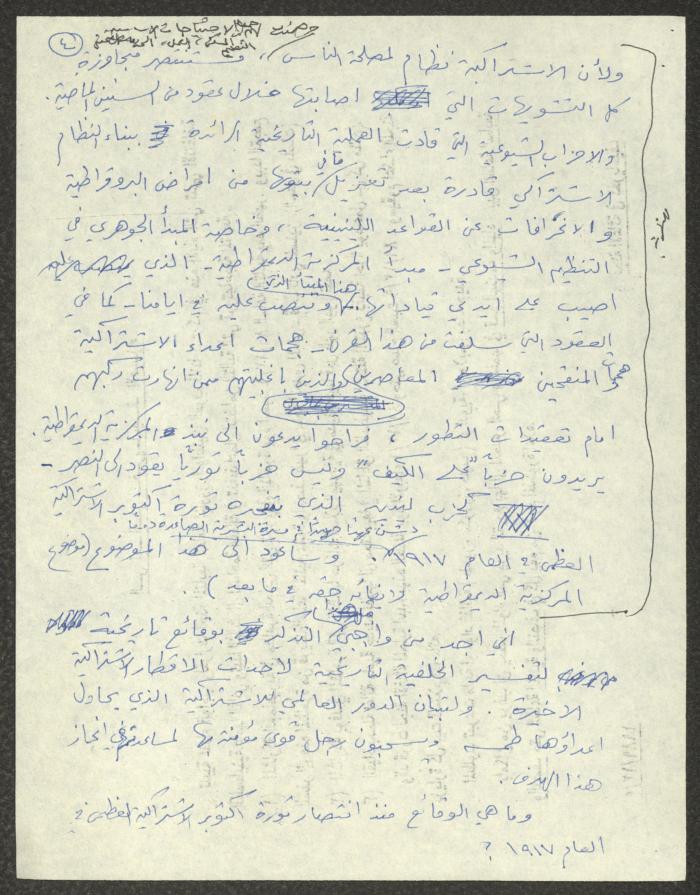 ٤
ولأن الاشتراكية نظام لمصلحة الناس، وستنتصر متجاوزة
كل التشويهات التي اصابتها خلال عقود من السنين الماضية.
والاحزاب الشيوعية التي قادت العملية التاريخية الرائدة ببناء النظام
الاشتراكي قادرة بعد تعزيل ما في بيوتها من امراض البيروقراطية
والانحرافات عن القواعد اللينينية، وخاصة المبدأ الجوهري في
التنظيم الشيوعي - مبدأ المركزية الديمقراطية - الذي
اصيب على ايدي قياداتها. هذا المبدأ الذي وتنصب عليه في ايامنا - كما في
العقود التي سلفت من هذا القرن - هجمات اعداء الاشتراكية
المعاصرين والذين باغلبيتهم ممن انهارت ركبهم
امام تعقيدات التطور، فراحوا يدعون الى نبذ المركزية الديمقراطية.
يريدون حزباً "على الكيف" وليس حزباً ثورياً يقود الى النصر -
كحزب لينين الذي ثورة اكتوبر الاشتراكية
العظمى في العام ١٩١٧. وسأعود الى هذا الموضوع (موضوع
المركزية الديمقراطية لايفائه حقه في ما بعد).
اني اجد من واجبي التذكير بوقائع تاريخية
لتفسير الخلفية التاريخية لاحداث الاقطار الاشتراكية
الاخيرة. ولتبيان الدور العالمي للاشتراكية الذي يحاول
اعداؤها طمسه لمساعدتهم في انجاز
هذا الهدف.
وما هي الوقائع منذ انتصار ثورة اكتوبر الاشتراكية العظمى في
العام ١٩١٧؟